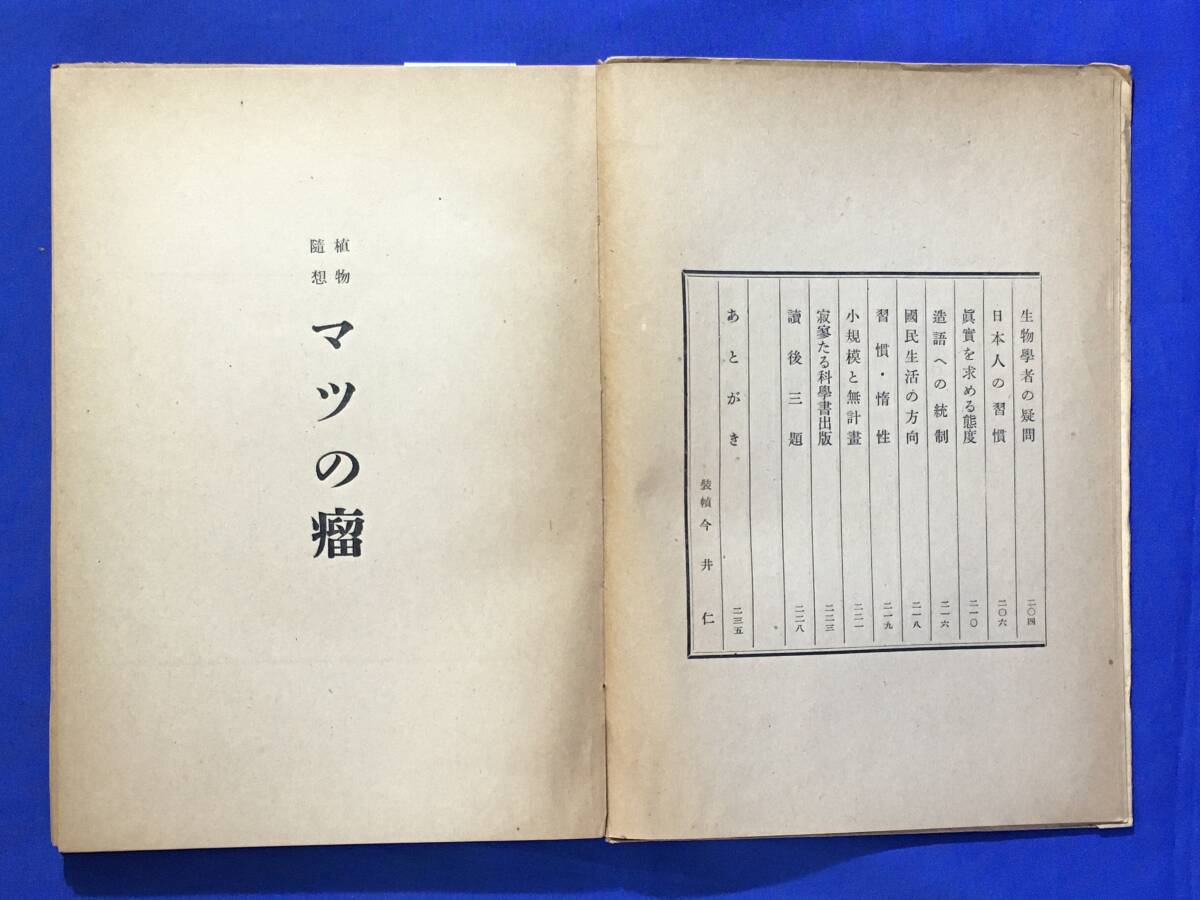 生物學者の疑問 二〇四
日本人の習慣 二〇六
眞實を求める態度 二一〇
造語への統制 二一六
國民生活の方向 二一八
習慣・惰性 二一九
小規模と無計畫 二二一
寂寥たる科學書出版 二二三
讀後三題 二二八
あとがき 二三五
裝幀 今井仁
植物
隨想
マツの瘤